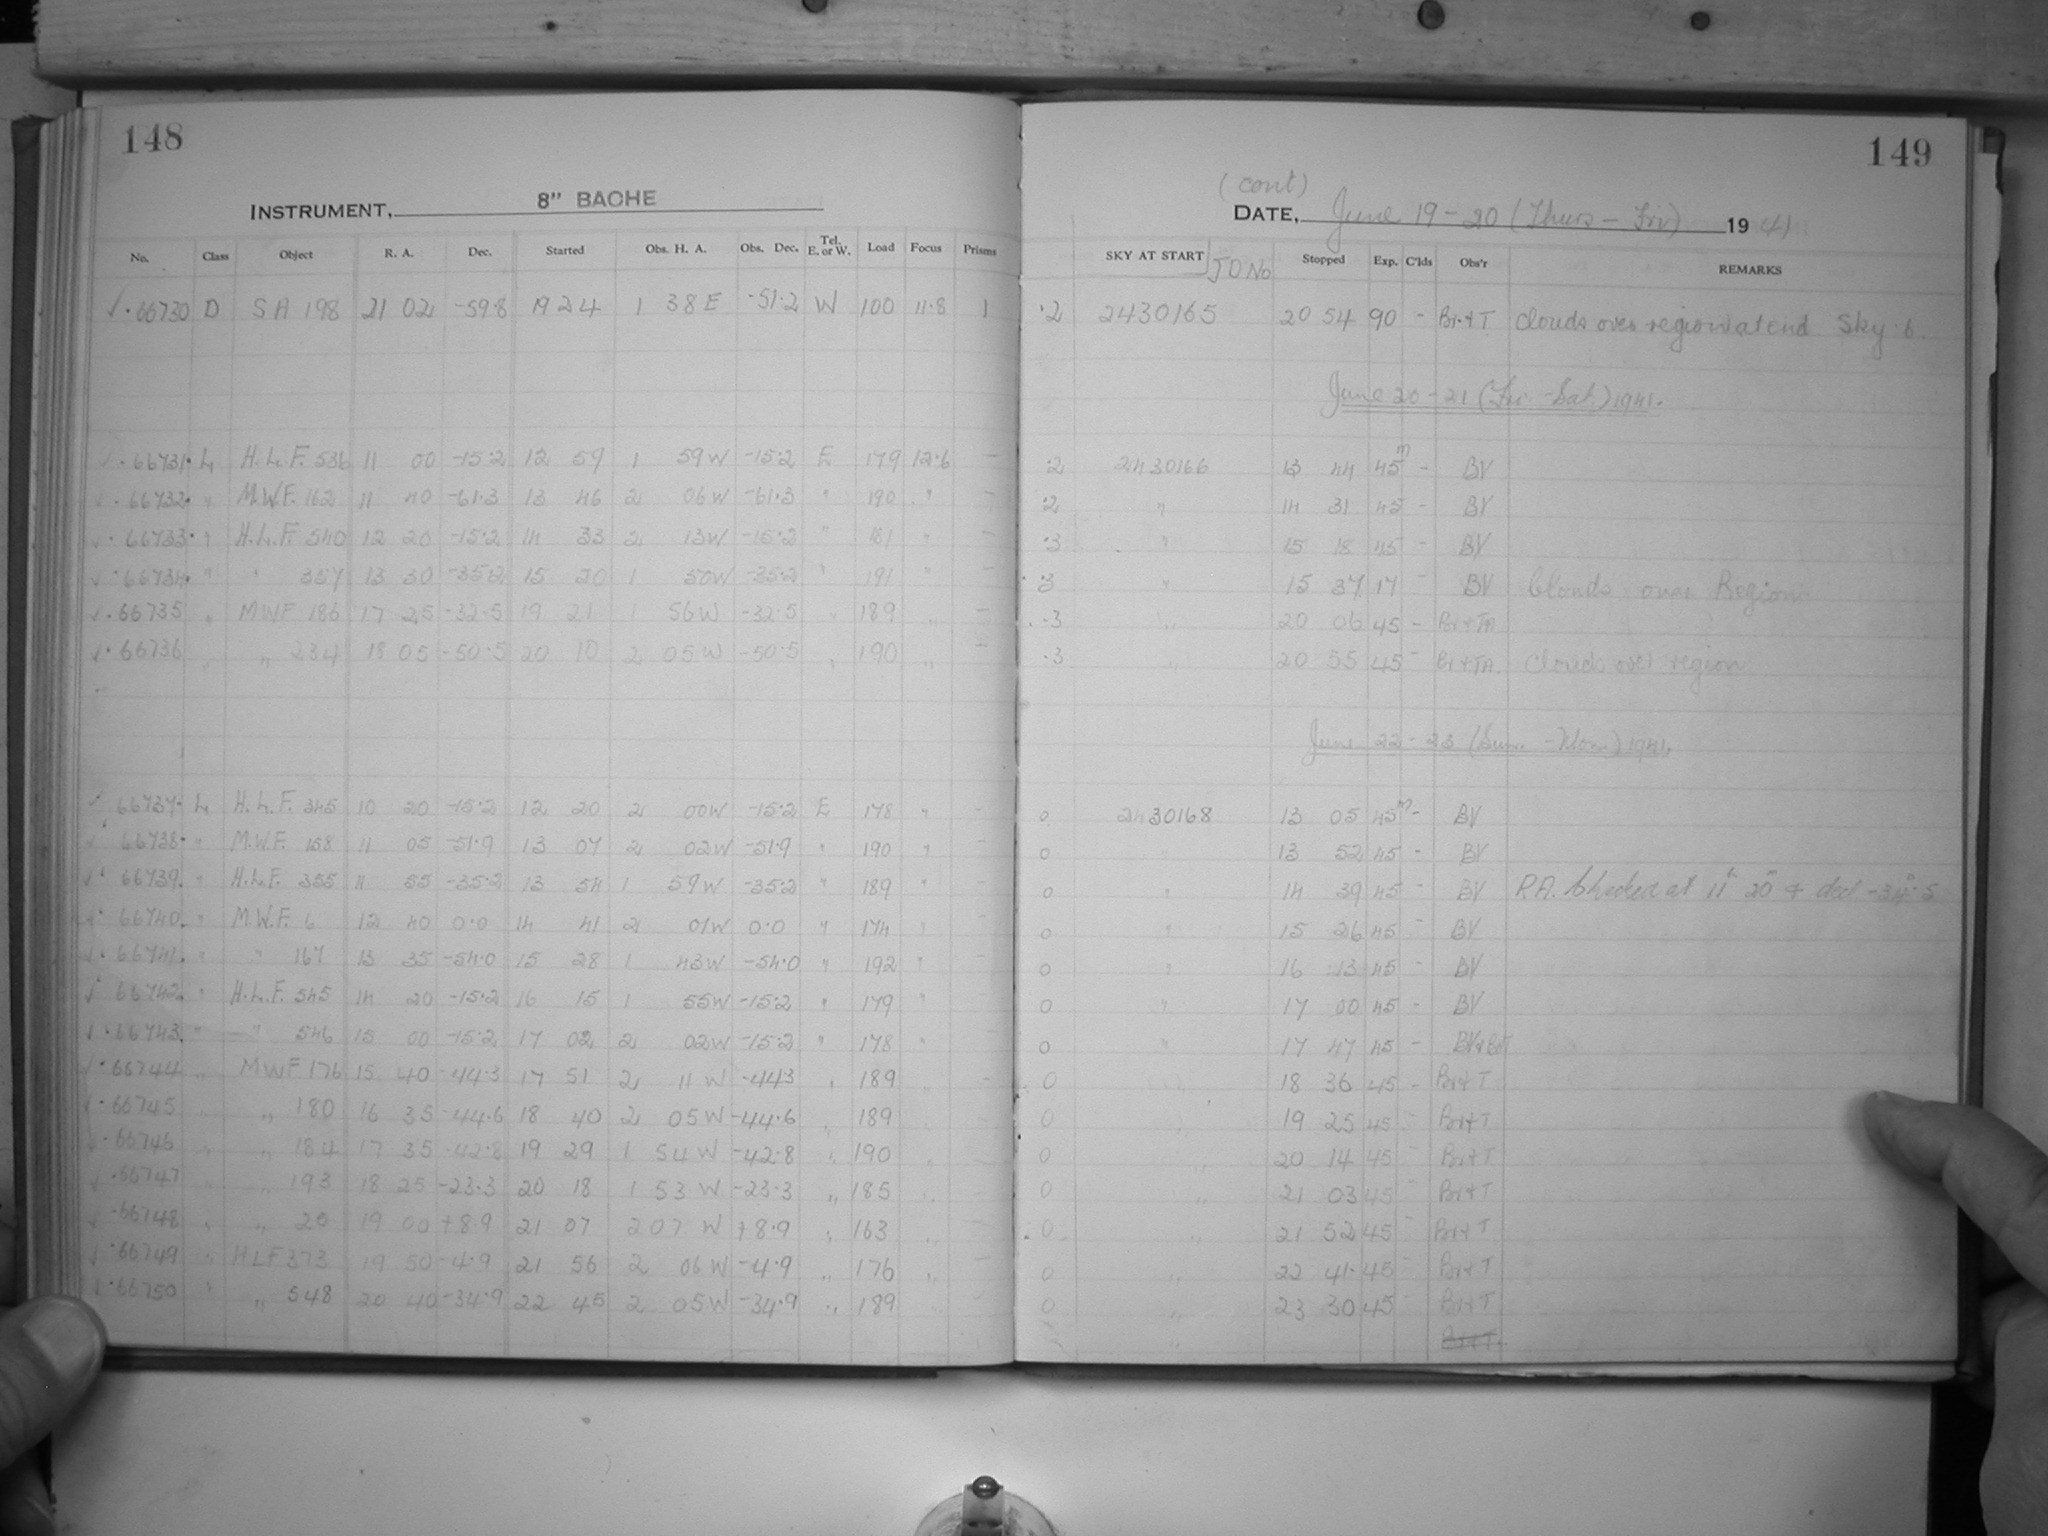 148
INSTRUMENT, 8" BACHE
No. Class Object R. A. Dec. Started Obs. H. A. Obs. Dec. Tel. E. or W. Load Focus Prisms
✓ · 66730 D SA 198 21 02 -59.8 19 24 1 38 E -51.2 W 100 11.8 1
✓ · 66731 · L H.L.F. 536 11 00 -15.2 12 59 1 59 W -15.2 E 179 12.6 -
✓ · 66732 · " M.W.F. 162 11 40 -61.3 13 46 2 06 W -61.3 " 190 " -
✓ · 66733 · " H.L.F. 540 12 20 -15.2 14 33 2 13 W -15.2 " 181 " -
✓ · 66734 · " " 357 13 30 -35.2 15 20 1 50 W -35.2 " 191 " -
✓ · 66735 " MWF 186 17 25 -32.5 19 21 1 56 W -32.5 " 189 " -
✓ · 66736 " " 234 18 05 -50.5 20 10 2 05 W -50.5 " 190 " -
✓ 66737 · L H.L.F. 345 10 20 -15.2 12 20 2 00 W -15.2 E 178 " -
✓ · 66738 · " M.W.F. 158 11 05 -51.9 13 07 2 02 W -51.9 " 190 " -
✓ · 66739 · " H.L.F. 355 11 55 -35.2 13 54 1 59 W -35.2 " 189 " -
✓ · 66740 · " M.W.F. 6 12 40 0.0 14 41 2 01 W 0.0 " 174 " -
✓ · 66741 · " " 167 13 35 -54.0 15 28 1 43 W -54.0 " 192 " -
✓ · 66742 · " H.L.F. 545 14 20 -15.2 16 15 1 55 W -15.2 " 179 " -
✓ · 66743 · " " 546 15 00 -15.2 17 02 2 02 W -15.2 " 178 " -
✓ · 66744 " MWF 176 15 40 -44.3 17 51 2 11 W -443 " 189 " -
✓ · 66745 " " 180 16 35 -44.6 18 40 2 05 W -44.6 " 189 " -
✓ · 66746 " " 184 17 35 -42.8 19 29 1 54 W -42.8 " 190 " -
✓ · 66747 " " 193 18 25 -23.3 20 18 1 53 W -23.3 " 185 " -
✓ · 66748 " " 20 19 00 +8.9 21 07 2 07 W +8.9 " 163 " -
✓ · 66749 " HLF 373 19 50 -4.9 21 56 2 06 W -4.9 " 176 " -
✓ · 66750 " " 548 20 40 -34.9 22 45 2 05 W -34.9 " 189 " -
149
(cont)
DATE, June 19-20 (Thurs - Fri) 1941
SKY AT START JD No Stopped Exp. C'lds Obs'r REMARKS
.2 2430165 20 54 90 - Br.+T clouds over region at end Sky .6
June 20-21 (Fri - Sat.) 1941.
.2 2430166 13 44 45m - BV
.2 " 14 31 45 - BV
.3 " 15 18 45 - BV
.3 " 15 37 17 - BV Clouds over Region
.3 " 20 06 45 - Br+TA
.3 " 20 55 45 - Br+TA. Clouds over region
June 22-23 (Sun. - Mon.) 1941.
0 2430168 13 05 45m - BV
0 " 13 52 45 - BV
0 " 14 39 45 - BV R.A. Checked at 11h 20m & decl -34°.5
0 " 15 26 45 - BV
0 " 16 13 45 - BV
0 " 17 00 45 - BV
0 " 17 47 45 - BV
0 " 18 36 45 - Br+T
0 " 19 25 45 - Br+T
0 " 20 14 45 - Br+T
0 " 21 03 45 - Br+T
0 " 21 52 45 - Br+T
0 " 22 41 45 - Br+T
0 " 23 30 45 - Br+T
" Br+T.